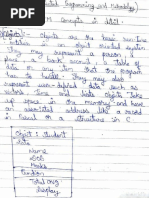 Programming and Methodology)
concepts in detail :-
Objects are the basic run time
entities in an object oriented system.
They may represent a person a
place a bank account, a table of
data or any item that the program
has to handle. They may also
represent user defined data such as
time and lists. Objects take
up space in the memory and have
an associated address like a record
in Pascal or a structure in C
Object : Student
Data
Name
DOB
Marks
Function
Total
Avg
Display